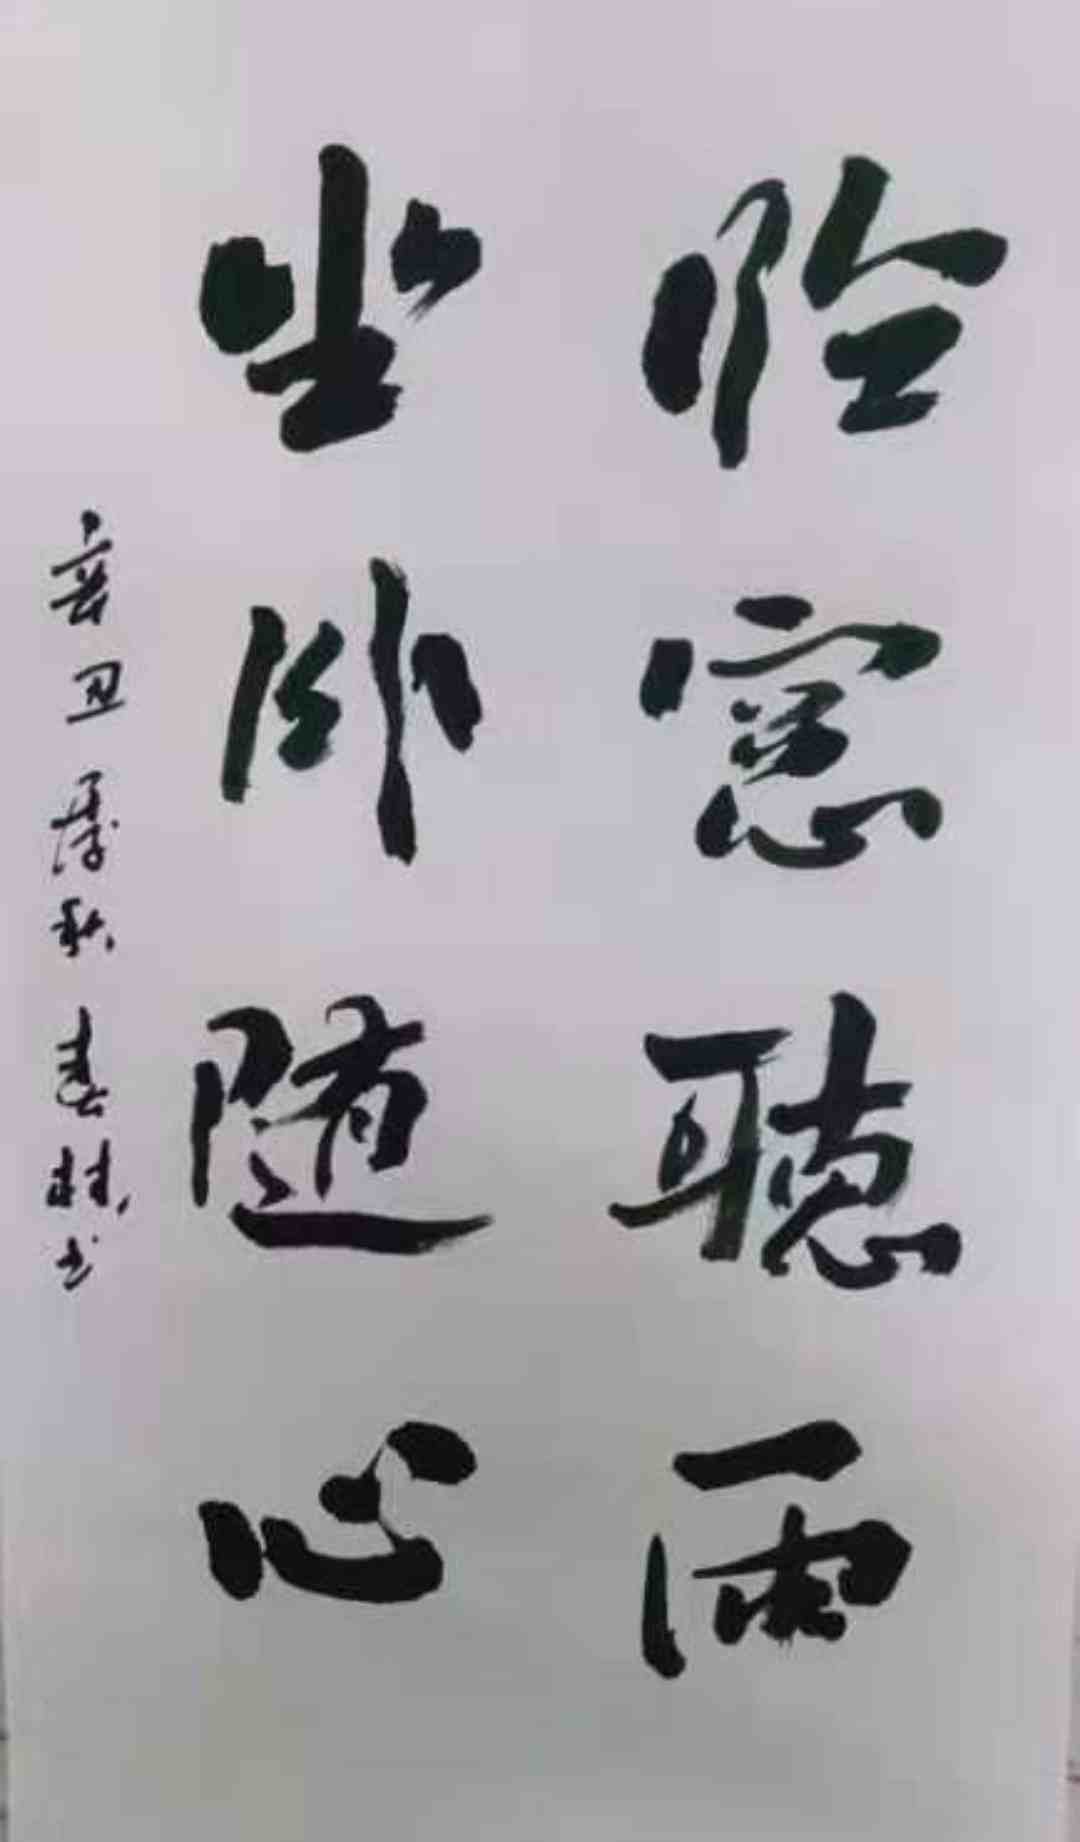 临窓聽雨
坐卧随心
辛丑孟秋 春林书